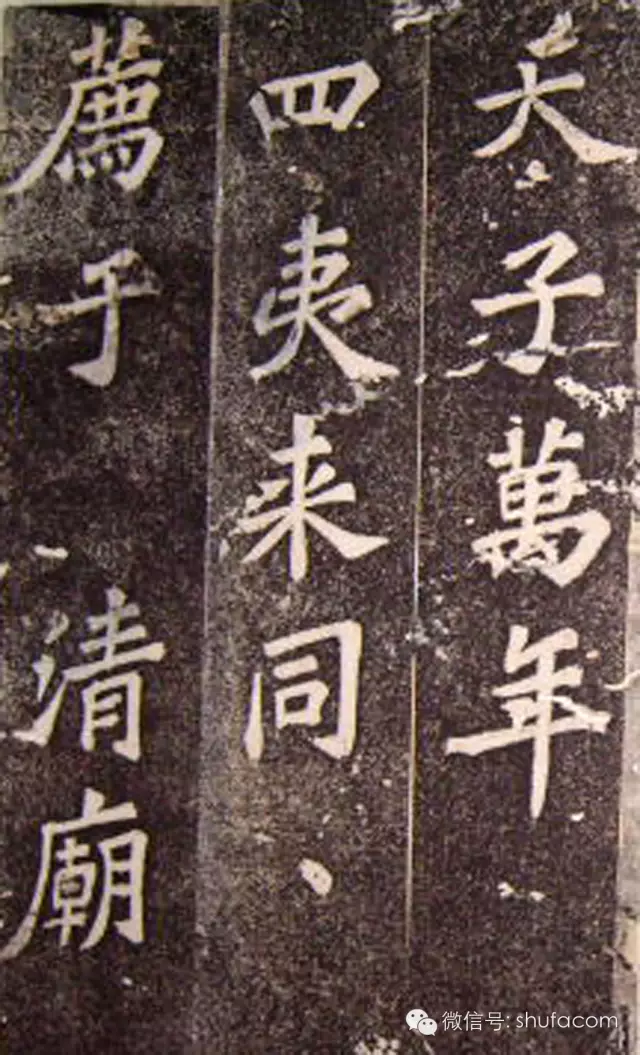 天子萬年
四夷来同、
薦于清廟
微信号: shufacom